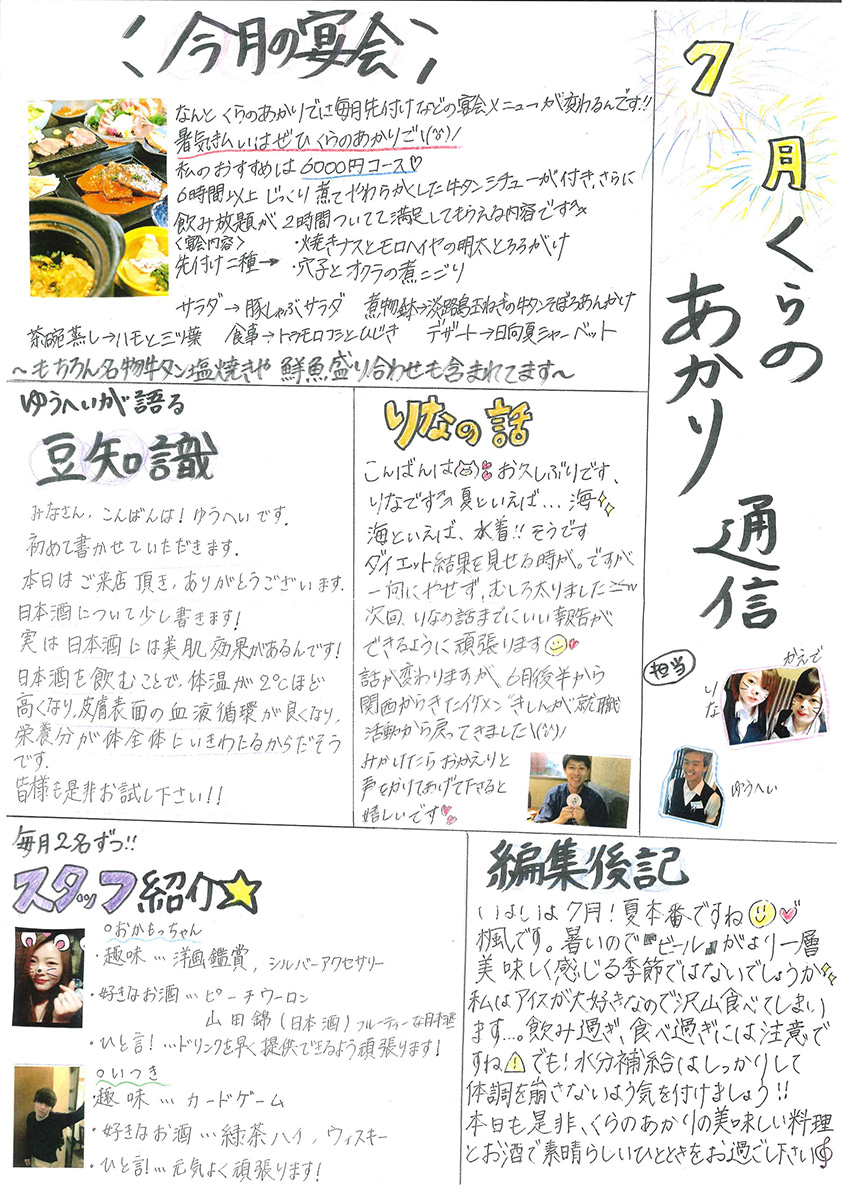 7月くらのあかり通信
担当
かえで
りな
ゆうへい
今月の宴会
なんとくらのあかりでは毎月先付けなどの宴会メニューが変わるんです!!
暑気払いはぜひくらのあかりで
私のおすすめは6000円コース♡
6時間以上じっくり煮てやわらかくした牛タンシチューが付き、さらに
飲み放題が2時間ついてて満足してもらえる内容です
<宴会内容>
・焼きナスとモロヘイヤの明太とろろがけ
先付け二種→
・穴子とオクラの煮こごり
サラダ→豚しゃぶサラダ 煮物鉢→淡路島玉ねぎの牛タンそぼろあんかけ
茶碗蒸し→ハモと三ツ葉 食事→トウモロコシとひじき デザート→日向夏シャーベット
~もちろん名物牛タン塩焼きや鮮魚盛り合わせも含まれてます~
ゆうへいが語る
豆知識
みなさん、こんばんは!ゆうへいです。
初めて書かせていただきます。
本日はご来店頂き、ありがとうございます。
日本酒について少し書きます!
実は日本酒には美肌効果があるんです!
日本酒を飲むことで、体温が2℃ほど
高くなり、皮膚表面の血液循環が良くなり、
栄養分が体全体にいきわたるからだそう
です。
皆様も是非お試し下さい!!
りなの話
こんばんは お久しぶりです、
りなです 夏といえば...海
海といえば、水着!!そうです
ダイエット結果を見せる時が。ですが
一向にやせず、むしろ太りました
次回、りなの話までにいい報告が
できるように頑張ります
話が変わりますが、6月後半から
関西からきたイケメン"きしんが就職
活動から戻ってきました
みかけたらおかえりと
声をかけてあげて下さると
嬉しいです
毎月2名ずつ!!
スタッフ紹介☆
○おかもっちゃん
・趣味…洋画鑑賞,シルバーアクセサリー
・好きなお酒…ピーチウーロン
山田錦(日本酒)フルーティーな日本酒
・ひと言!…ドリンクを早く提供できるよう頑張ります!
○いつき
・趣味…カードゲーム
・好きなお酒…緑茶ハイ,ウィスキー
・ひと言!…元気よく頑張ります!
編集後記
いよいよ7月!夏本番ですね
楓です。暑いので『ビール』がより一層
美味しく感じる季節ではないでしょうか
私はアイスが大好きなので沢山食べてしまい
ます...。飲み過ぎ、食べ過ぎには注意で
すね でも!水分補給はしっかりして
体調を崩さないよう気を付けましょう!!
本日も是非、くらのあかりの美味しい料理
とお酒で素晴らしいひとときをお過ごし下さい